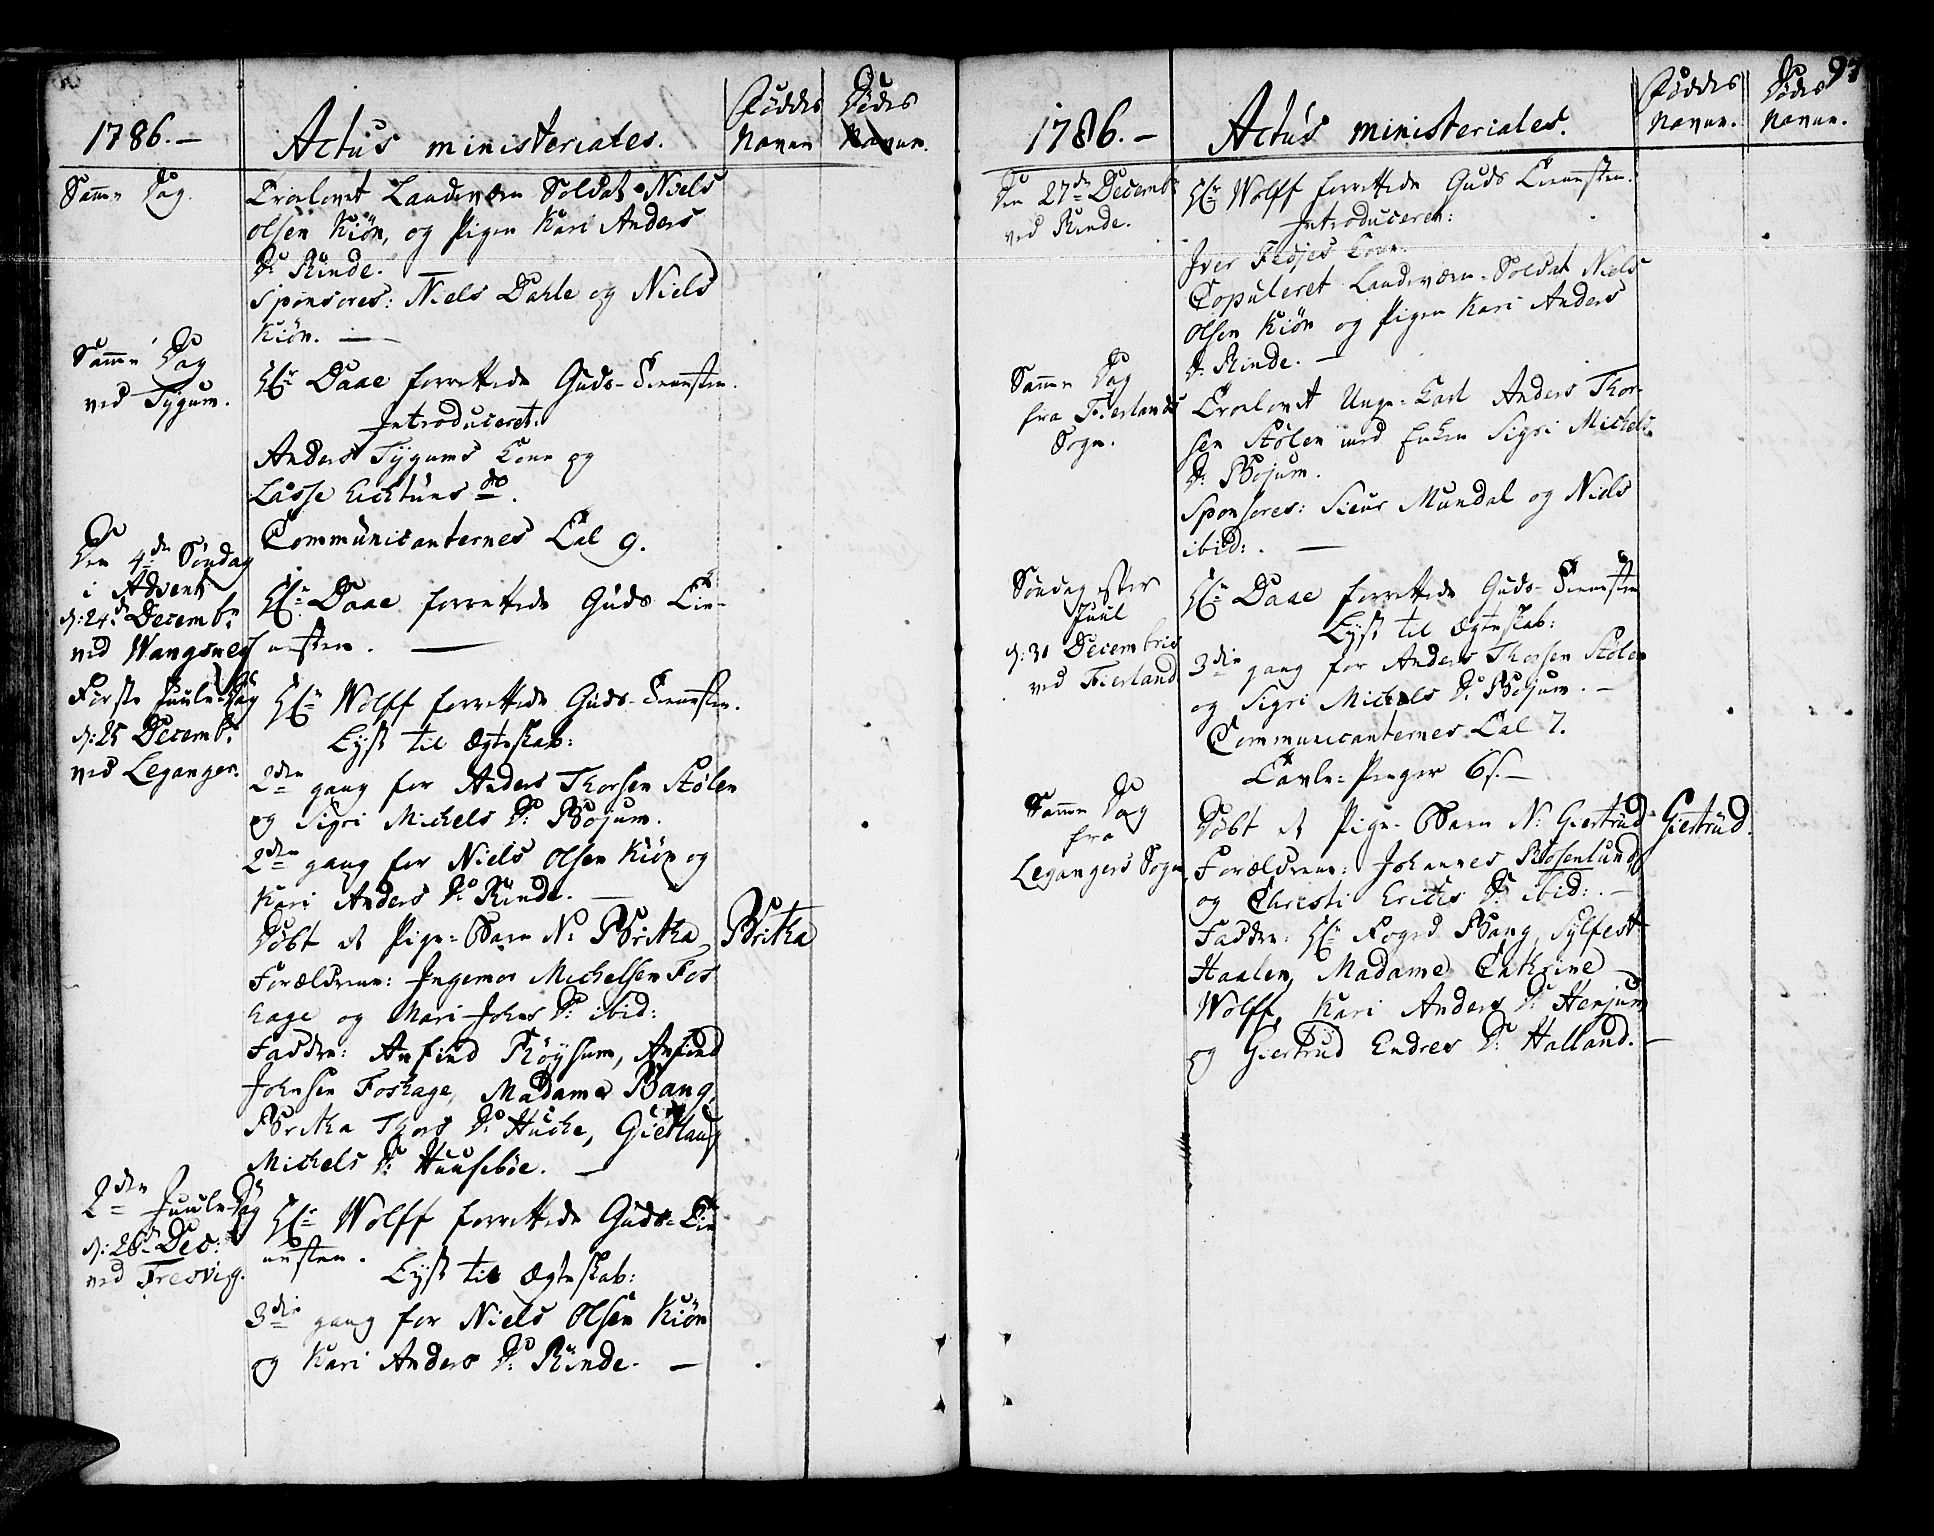 1786.— Actus ministeriales. Føddes Navne Dødes Navne.
Samme Dag.
Troelovet Landeværn Soldat Niels
Olsen Kiøn, og Pigen Kari Anders
D: Rinde.
Sponsores: Niels Dahle og Niels
Kiøn. —
Samme Dag
ved Tygum.
Hr: Daae forrettede Guds-Tienesten.
Introduceret.
Anders Tygums Kone og
Lasse Eichtuns do.
Communicanternes Tal 9.
Den 4de Søndag
i Advent
d: 24de Decembr
ved Wangsnes
Hr: Daae forrettede Guds Tie-
nesten. —
Første Juule-Dag
d: 25 Decembr
ved Leganger.
Hr: Wolff forrettede Guds-Tienesten.
Lyst til Ægteskab:
2den gang for Anders Thorsen Stølen
og Sigri Michels D: Bojum.
2den gang for Niels Olsen Kiøn og
Kari Anders D: Rinde. —
Døbt et Pige-Barn N: Britha Britha
Forældrene: Ingemor Michelsen Fos
hage og Mari Johns D: ibid:
Faddre: Anfind Røysum, Anfind
Johnsen Foshage, Madame Bang,
Britha Thors D: Huche, Giertlaug
Michels D: Huusebøe. —
2den Juule-Dag
d: 26 Dec:
ved Fresvig.
Hr: Wolff forrettede Guds-Tie
nesten.
Lyst til Ægteskab:
3die gang for Niels Olsen Kiøn
og Kari Anders D: Rinde. —
97
1786.— Actus ministeriales. Føddes Navne. Dødes Navne.
Den 27de Decembr
ved Rinde.
Hr: Wolff forrettede Guds Tienesten.
Introduceret:
Iver Fløjes Kone.
Copuleret Landeværn-Soldat Niels
Olsen Kiøn og Pigen Kari Anders
D: Rinde. —
Samme Dag
fra Fierlands
Sogn.
Troelovet Unge-Karl Anders Thor-
sen Stølen med Enken Sigri Michels
D: Bojum.
Sponsores: Siur Mundal og Niels
ibid: —
Søndag efter
Juul
d: 31 Decembris
ved Fierland
Hr: Daae forrettede Guds-Tienesten
Lyst til Ægteskab:
3die gang for Anders Thorsen Stølen
og Sigri Michels D: Bojum. —
Communicanternes Tal 7.
Tavle-Penger 6 s. —
Samme Dag
fra
Legangers Sogn
Døbt et Pige-Barn N: Giertrud Giertrud.
Forældrene: Johannes Rosenlund
og Christi Erichs D: ibid: —
Faddre: Hr: Foged Bang, Sylfest
Haalen, Madame Cathrine
Wolff, Kari Anders D: Henjum
og Giertrud Endres D: Halland. —